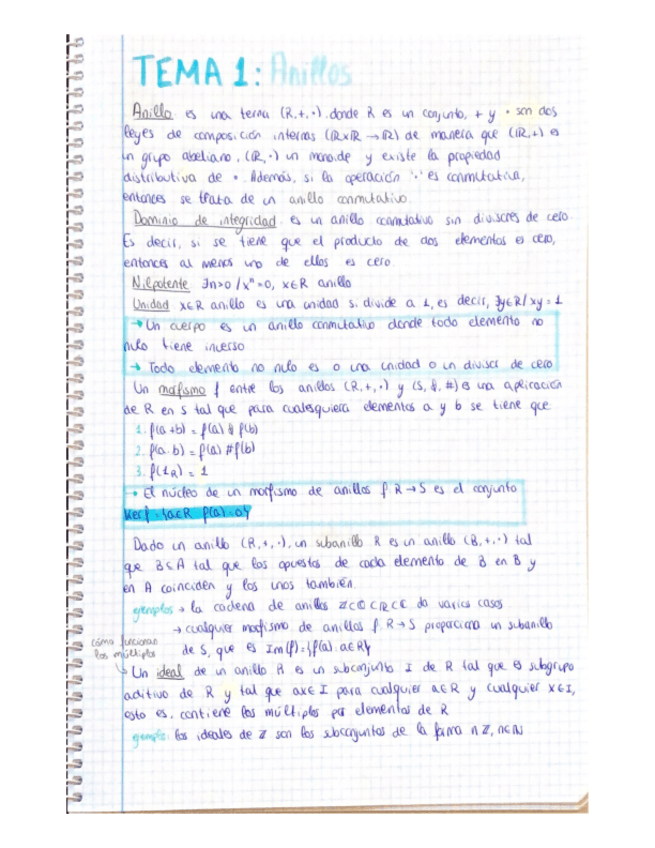 TEMA 1: Anillos
Anillo es una terna (R,+,·) donde R es un conjunto, + y · son dos
leyes de composición internas (RxR → R) de manera que (R,+) es
un grupo abeliano, (R,·) un monoide y existe la propiedad
distributiva de ·. Además, si la operación '·' es conmutativa,
entonces se trata de un anillo conmutativo.
Dominio de integridad es un anillo conmutativo sin divisores de cero.
Es decir, si se tiene que el producto de dos elementos es cero,
entonces al menos uno de ellos es cero.
Nilpotente ∃n>0 / xⁿ=0, x∈R anillo
Unidad x∈R anillo es una unidad si divide a 1, es decir, ∃y∈R/ xy = 1
→ Un cuerpo es un anillo conmutativo donde todo elemento no
nulo tiene inverso
→ Todo elemento no nulo es o una unidad o un divisor de cero
Un morfismo f entre los anillos (R,+,·) y (S, &, #) es una aplicación
de R en S tal que para cualesquiera elementos a y b se tiene que
1. f(a+b) = f(a) & f(b)
2. f(a·b) = f(a) # f(b)
3. f(1_R) = 1
→ El núcleo de un morfismo de anillos f: R→S es el conjunto
Kerf = {a∈R f(a)=0}
Dado un anillo (R,+,·), un subanillo R es un anillo (B,+,·) tal
que B⊆A tal que los opuestos de cada elemento de B en B y
en A coinciden y los unos también.
ejemplos → la cadena de anillos Z⊂Q⊂R⊂C da varios casos
→ cualquier morfismo de anillos f: R→S proporciona un subanillo
de S, que es Im(f)={f(a): a∈R}
cómo funcionan
los múltiplos
Un ideal de un anillo R es un subconjunto I de R tal que es subgrupo
aditivo de R y tal que ax∈I para cualquier a∈R y cualquier x∈I,
esto es, contiene los múltiplos por elementos de R
ejemplo: los ideales de Z son los subconjuntos de la forma nZ, n∈N